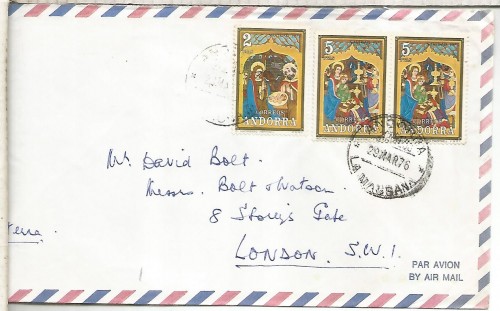 2
CORREOS
ANDORRA
5
CORREOS
ANDORRA
5
CORREOS
ANDORRA
20 MAR 76
LA MASSANA
Mr. David Bolt.
Messrs. Bolt & Watson.
8 Storey's Gate
LONDON. S.W.1.
terra.
PAR AVION
BY AIR MAIL